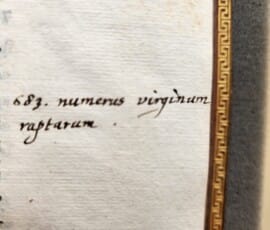 683. numerus virginum
raptarum .